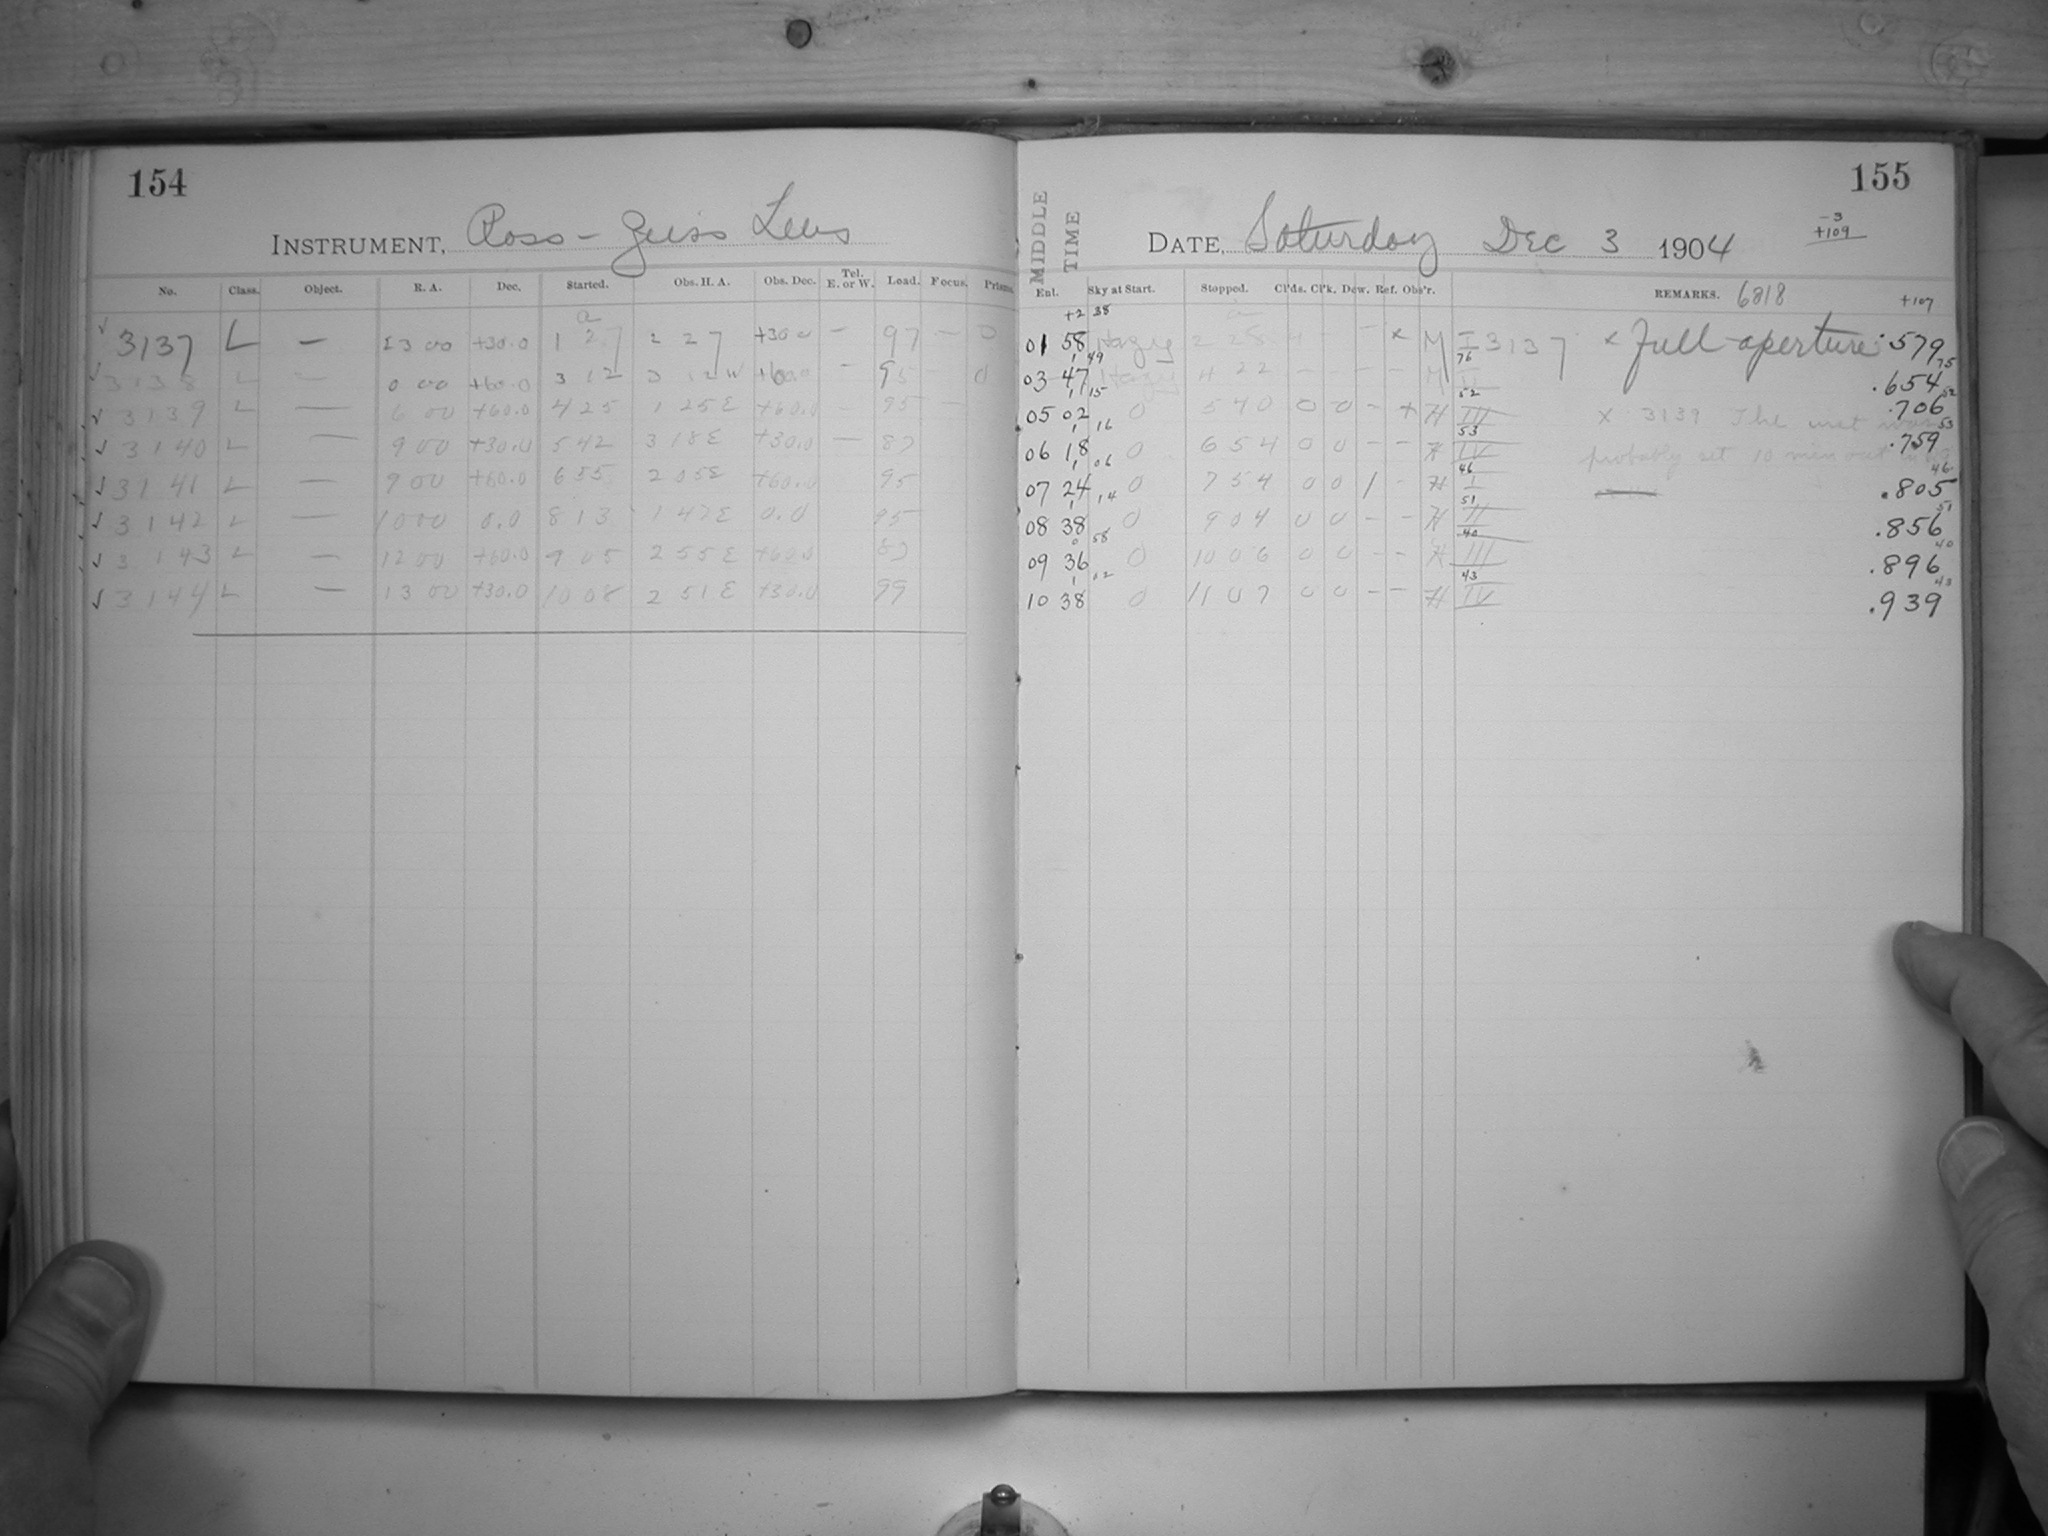 154
INSTRUMENT, Ross-Zeiss Lens
No. Class. Object. R. A. Dec. Started. Obs. H. A. Obs. Dec. Tel. E. or W. Load. Focus. Prisms.
a
✓ 3137 L — 23 00 +30.0 1 27 2 27 +30.0 — 97 — 0
✓ 3138 L — 0 00 +60.0 3 12 3 12 W +60.0 — 95 — 0
✓ 3139 L — 6 00 +60.0 4 25 1 25 E +60.0 — 95 —
✓ 3140 L — 9 00 +30.0 5 42 3 18 E +30.0 — 87
✓ 3141 L — 9 00 +60.0 6 55 2 05 E +60.0 95
✓ 3142 L — 10 00 0.0 8 13 1 47 E 0.0 95
✓ 3143 L — 12 00 +60.0 9 05 2 55 E +60.0 87
✓ 3144 L — 13 00 +30.0 10 08 2 51 E +30.0 99
155
MIDDLE TIME
DATE, Saturday Dec 3 1904
-3
+109
Enl. Sky at Start. Stopped. Cl'ds. Cl'k. Dew. Ref. Obs'r. REMARKS. 6818 +107
+2 38 a
01 58 Hazy 2 28 — — × M I 3137 × Full aperture .579
1 49 76 75
03 47 Hazy 4 22 — — — M II .654
1 15 52 52
05 02 0 5 40 0 0 — × H III × 3139 The met was .706
1 16 53 53
06 18 0 6 54 0 0 — — H IV probably set 10 min out .759
1 06 46 46
07 24 0 7 54 0 0 / — H I .805
1 14 51 51
08 38 0 9 04 0 0 — — H II .856
0 58 40 40
09 36 0 10 06 0 0 — — H III .896
1 02 43 43
10 38 0 11 07 0 0 — — H IV .939